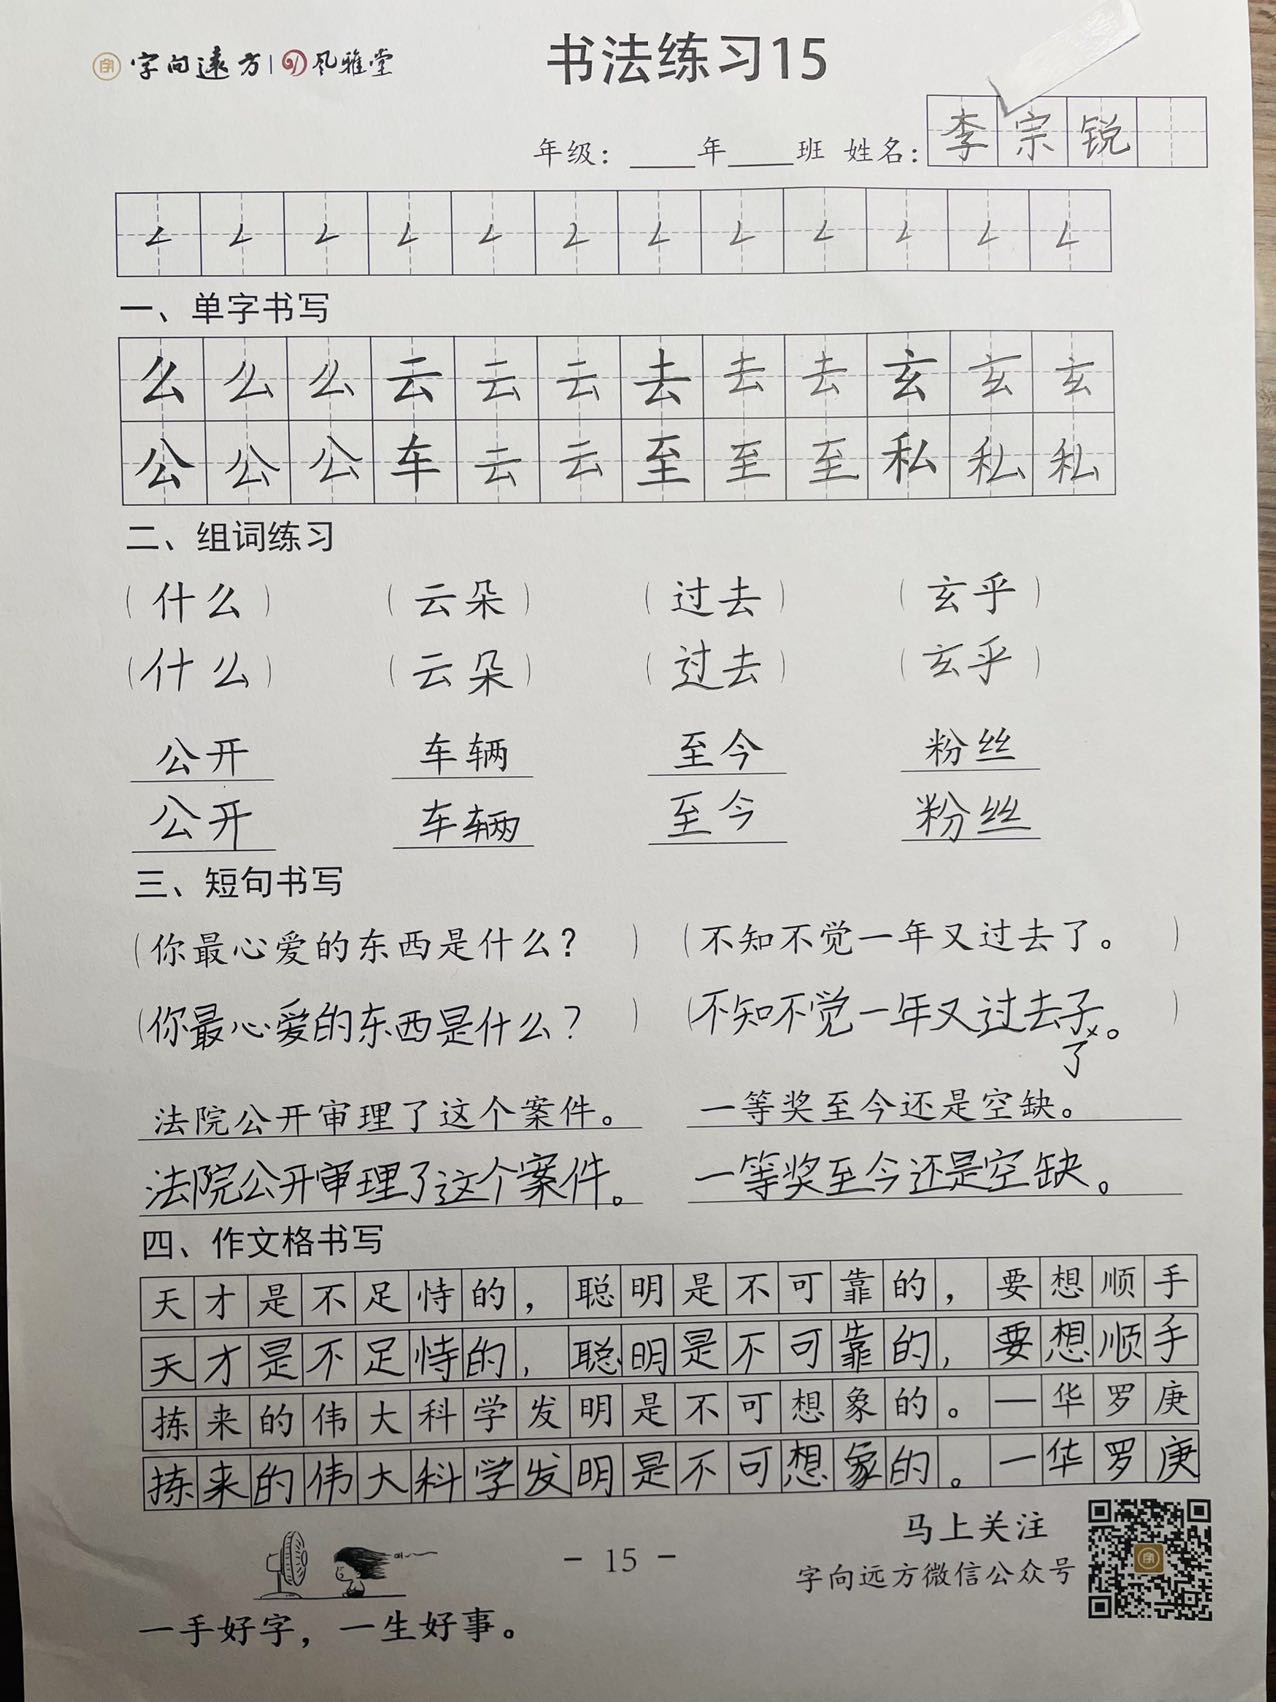 字向遠方 | 风雅堂
书法练习15
年级：____年____班 姓名：李宗锐
ㄥ ㄥ ㄥ ㄥ ㄥ ㄥ ㄥ ㄥ ㄥ ㄥ ㄥ ㄥ
一、单字书写
么么么云云云去去去玄玄玄
公公公车云云至至至私私私
二、组词练习
（什么） （云朵） （过去） （玄乎）
（什么） （云朵） （过去） （玄乎）
公开 车辆 至今 粉丝
公开 车辆 至今 粉丝
三、短句书写
（你最心爱的东西是什么？ ） （不知不觉一年又过去了。 ）
（你最心爱的东西是什么？ ） （不知不觉一年又过去子。 ）
了
法院公开审理了这个案件。 一等奖至今还是空缺。
法院公开审理了这个案件。 一等奖至今还是空缺。
四、作文格书写
天才是不足恃的，聪明是不可靠的，要想顺手
天才是不足恃的，聪明是不可靠的，要想顺手
拣来的伟大科学发明是不可想象的。—华罗庚
拣来的伟大科学发明是不可想象的。—华罗庚
马上关注
- 15 -
字向远方微信公众号
一手好字，一生好事。